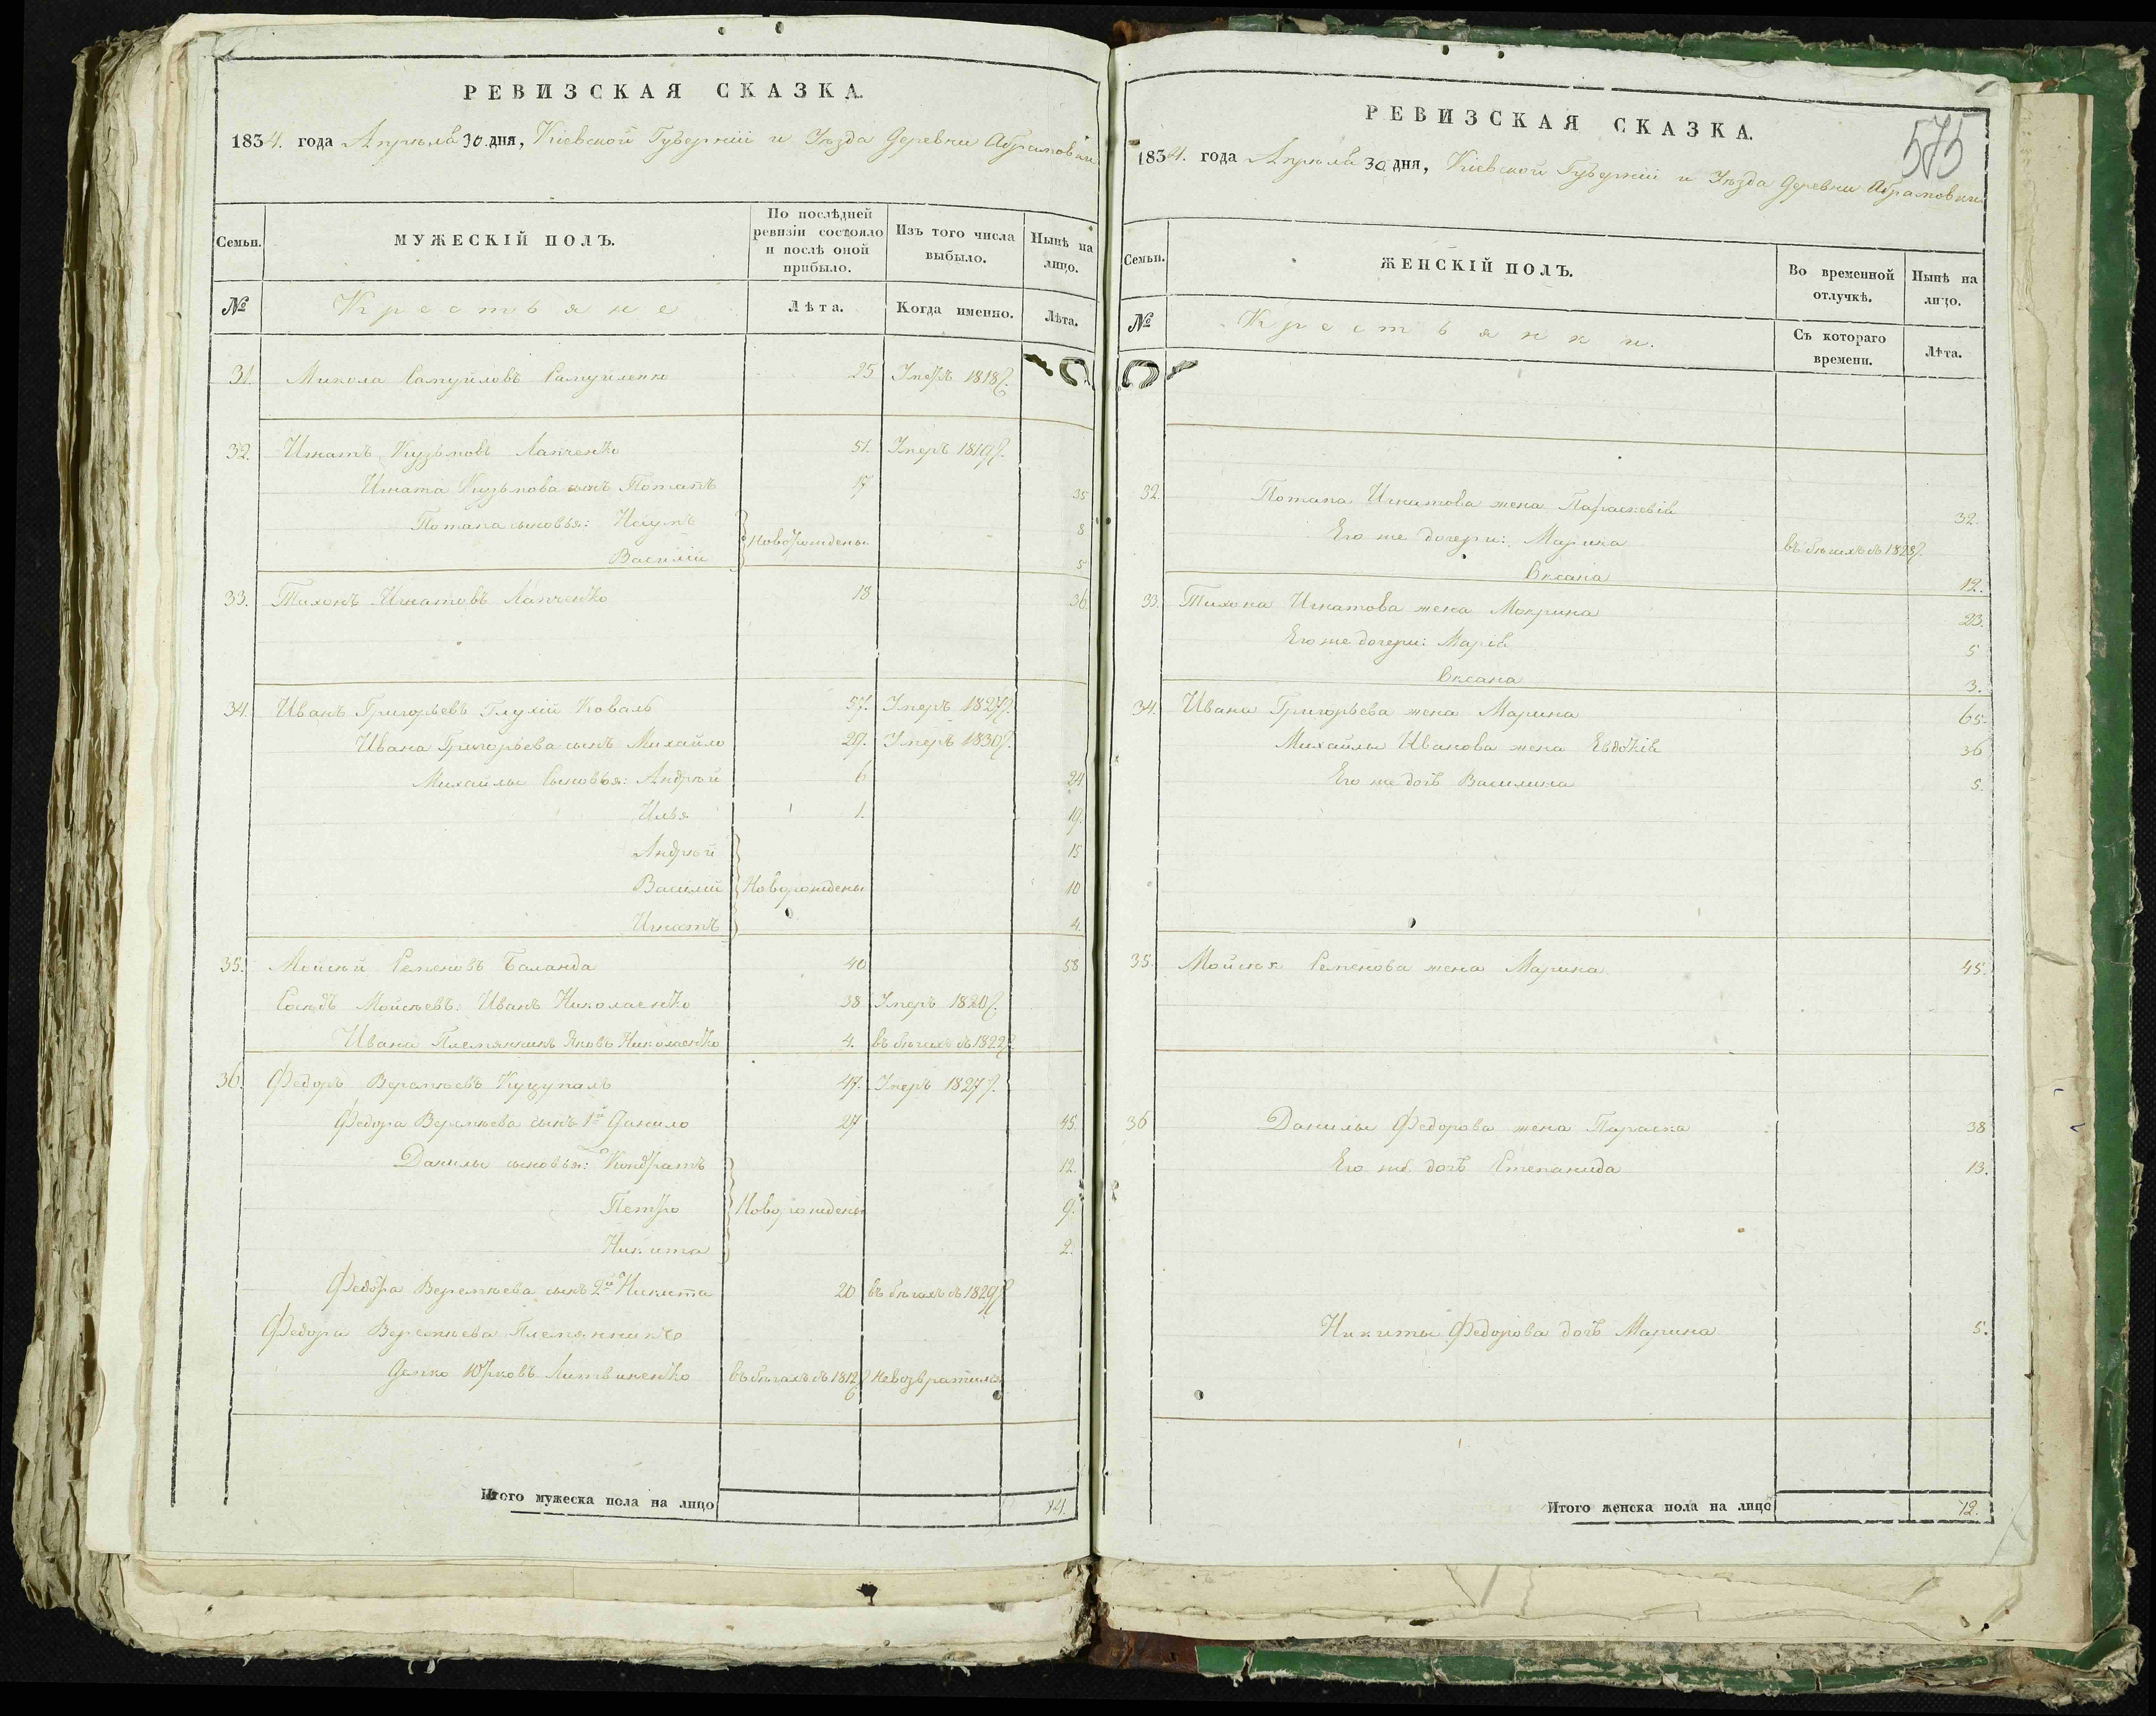 РЕВИЗСКАЯ СКАЗКА.
1834. года Апрѣля 30 дня, Кіевской Губерніи и Уѣзда Деревни Абрамовки
Семьи.
МУЖЕСКІЙ ПОЛЪ.
По послѣдней ревизіи состояло и послѣ оной прибыло.
Изъ того числа выбыло.
Нынѣ на лицо.
№
Крестьяне
Лѣта.
Когда именно.
Лѣта.
31. Микола Самуйловъ Самуйленко 25 Умеръ 1818
32. Игнатъ Кузьмовъ Лапченко 51. Умеръ 1819
Игната Кузьмова сынъ Потапъ 17 35
Потапа сыновья: Наумъ 8
Новорождены
Василій 5
33. Тихонъ Игнатовъ Лапченко 18 36
34. Иванъ Григорьевъ Глухій Коваль 57. Умеръ 1827
Ивана Григорьева сынъ Михайло 29. Умеръ 1830
Михайлы Сыновья: Андрѣй 6 24
Илья 1. 19.
Андрѣй 15
Василій Новорождены 10
Игнатъ 4.
35. Мойсѣй Семеновъ Баланда 40 58
Сосѣдъ Мойсѣевъ: Иванъ Николаенко 38 Умеръ 1820
Ивана Племянникъ Яковъ Николаенко 4. въ бѣгахъ съ 1822
36. Федоръ Веремѣевъ 47. Умеръ 1827
Федора Веремѣева сынъ 1й Данило 27 45
Данилы сыновья: Кондратъ 12.
Петро Новорождены 9.
Никита 2.
Федора Веремѣева сынъ 2й Никита 20 въ бѣгахъ съ 1829
Федора Веремѣева Племянникъ
Демко Юрковъ Литвиненко въ бѣгахъ съ 1812 невозвратился
Итого мужеска пола на лицо 14.
РЕВИЗСКАЯ СКАЗКА.
575
1834. года Апрѣля 30 дня, Кіевской Губерніи и Уѣзда Деревни Абрамовки
Семьи.
ЖЕНСКІЙ ПОЛЪ.
Во временной отлучкѣ.
Нынѣ на лицо.
№
Крестьянки.
Съ котораго времени.
Лѣта.
32. Потапа Игнатова жена Параскевія 32.
Его же дочери: Марина въ бѣгахъ съ 1828
Оксана 12.
33. Тихона Игнатова жена Мокрина 23.
Его же дочери: Марія 5
Оксана 3.
34. Ивана Григорьева жена Марина 65.
Михайлы Иванова жена Евдокія 36
Его же дочь Василина 5.
35. Мойсѣя Семенова жена Марина 45.
36 Данилы Федорова жена Параска 38
Его же дочь Степанида 13.
Никиты Федорова дочь Марина 5.
Итого женска пола на лицо 12.